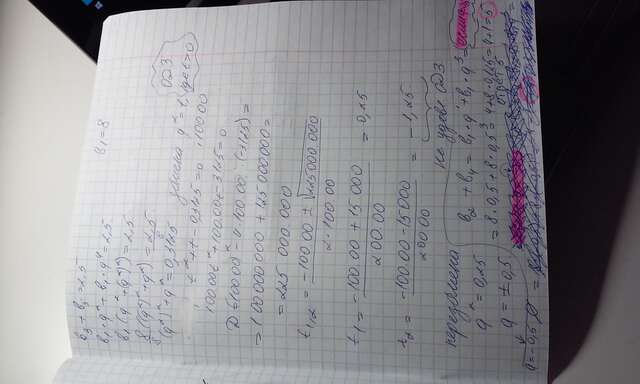 b₃ + b₅ = 2,5   b₁ = 8
b₁·q² + b₁·q⁴ = 2,5
b₁(q² + (q²)²) = 2,5
8((q²)² + q²) = 2,5
(q²)² + q² = 0,3125
замена q² = t, где t>0 ОДЗ
t² + t - 0,3125 = 0 ·10000
10000t² + 10000t - 3125 = 0
D = 10000² - 4·10000·(-3125) =
= 100000000 + 125000000 =
= 225 000.000
t₁,₂ = (-10000 ± √225000.000) / (2·10000)
t₁ = (-10000 + 15000) / 20000 = 0,25
t₂ = (-10000 - 15000) / 20000 = -1,25
не удовл ОДЗ
перезамена
q² = 0,25
q = ±0,5
b₂ + b₄ = b₁·q + b₁·q³ =
= 8·0,5 + 8·0,5³ = 4+8·0,125 = 4+1 = 5
ответ 5
q = -0,5